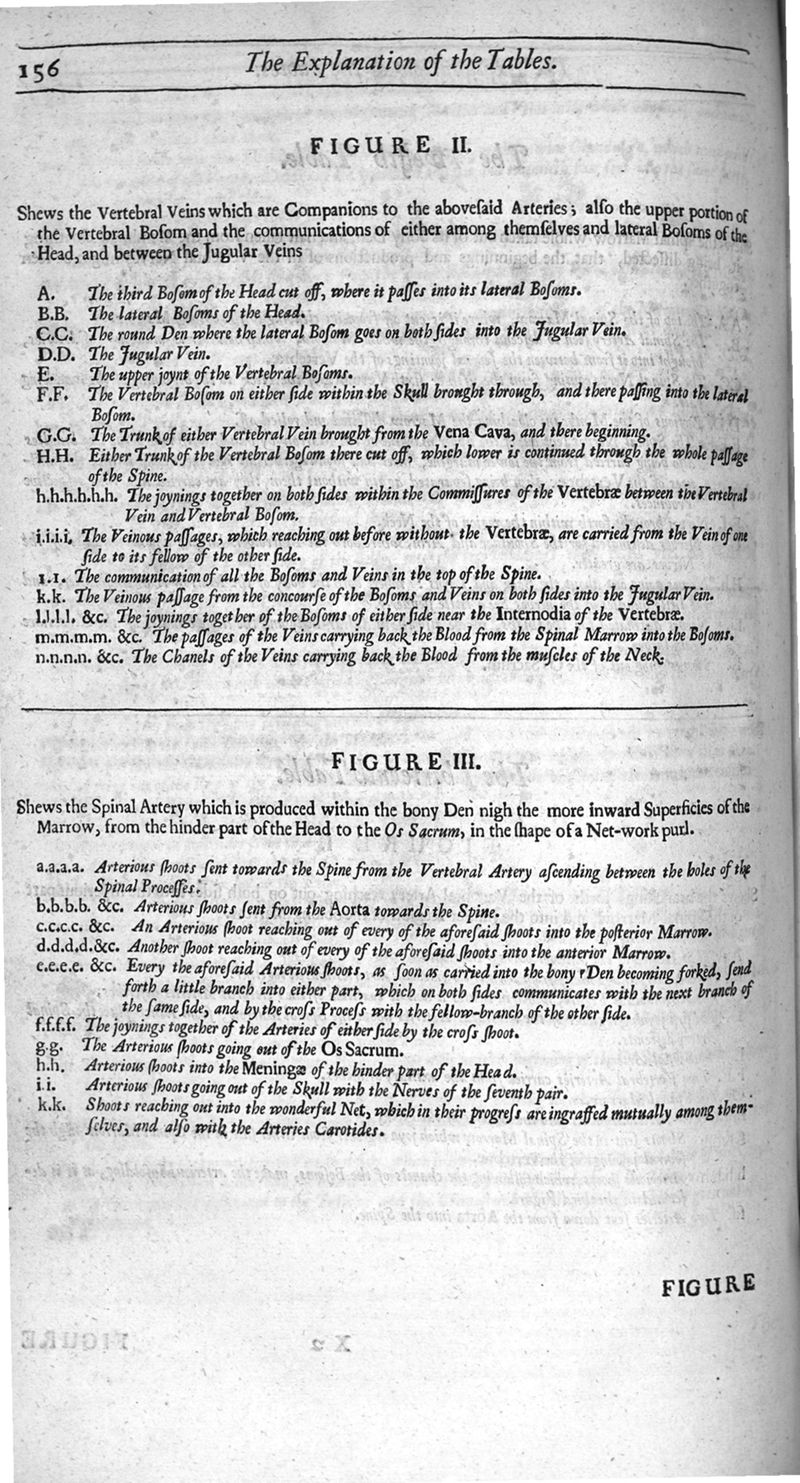 156
The Explanation of the Tables.
FIGURE II.
Shews the Vertebral Veins which are Companions to the aboveſaid Arteries; alſo the upper portion of
the Vertebral Boſom and the communications of either among themſelves and lateral Boſoms of the
Head, and between the Jugular Veins
A. The third Boſom of the Head cut off, where it paſſes into its lateral Boſoms.
B.B. The lateral Boſoms of the Head.
C.C. The round Den where the lateral Boſom goes on both ſides into the Jugular Vein.
D.D. The Jugular Vein.
E. The upper joynt of the Vertebral Boſoms.
F.F. The Vertebral Boſom on either ſide within the Skull brought through, and there paſſing into the lateral
Boſom.
G.G. The Trunk of either Vertebral Vein brought from the Vena Cava, and there beginning.
H.H. Either Trunk of the Vertebral Boſom there cut off, which lower is continued through the whole paſſage
of the Spine.
h.h.h.h.h.h. The joynings together on both ſides within the Commiſſures of the Vertebræ between the Vertebral
Vein and Vertebral Boſom.
i.i.i.i. The Veinous paſſages, which reaching out before without the Vertebræ, are carried from the Vein of one
ſide to its fellow of the other ſide.
1.1. The communication of all the Boſoms and Veins in the top of the Spine.
k.k. The Veinous paſſage from the concourſe of the Boſoms and Veins on both ſides into the Jugular Vein.
l.l.l.l. &c. The joynings together of the Boſoms of either ſide near the Internodia of the Vertebræ.
m.m.m.m. &c. The paſſages of the Veins carrying back the Blood from the Spinal Marrow into the Boſoms.
n.n.n.n. &c. The Chanels of the Veins carrying back the Blood from the muſcles of the Neck.
FIGURE III.
Shews the Spinal Artery which is produced within the bony Den nigh the more inward Superficies of the
Marrow, from the hinder part of the Head to the Os Sacrum, in the ſhape of a Net-work purl.
a.a.a.a. Arterious ſhoots ſent towards the Spine from the Vertebral Artery aſcending between the holes of the
Spinal Proceſſes.
b.b.b.b. &c. Arterious ſhoots ſent from the Aorta towards the Spine.
c.c.c.c. &c. An Arterious ſhoot reaching out of every of the aforeſaid ſhoots into the poſterior Marrow.
d.d.d.d.&c. Another ſhoot reaching out of every of the aforeſaid ſhoots into the anterior Marrow.
e.e.e.e. &c. Every the aforeſaid Arterious ſhoots, as ſoon as carried into the bony Den becoming forked, ſend
forth a little branch into either part, which on both ſides communicates with the next branch of
the ſame ſide, and by the croſs Proceſs with the fellow-branch of the other ſide.
f.f.f.f. The joynings together of the Arteries of either ſide by the croſs ſhoot.
g.g. The Arterious ſhoots going out of the Os Sacrum.
h.h. Arterious ſhoots into the Meningæ of the hinder part of the Head.
i.i. Arterious ſhoots going out of the Skull with the Nerves of the ſeventh pair.
k.k. Shoots reaching out into the wonderful Net, which in their progreſs are ingraffed mutually among them-
ſelves, and alſo with the Arteries Carotides.
FIGURE